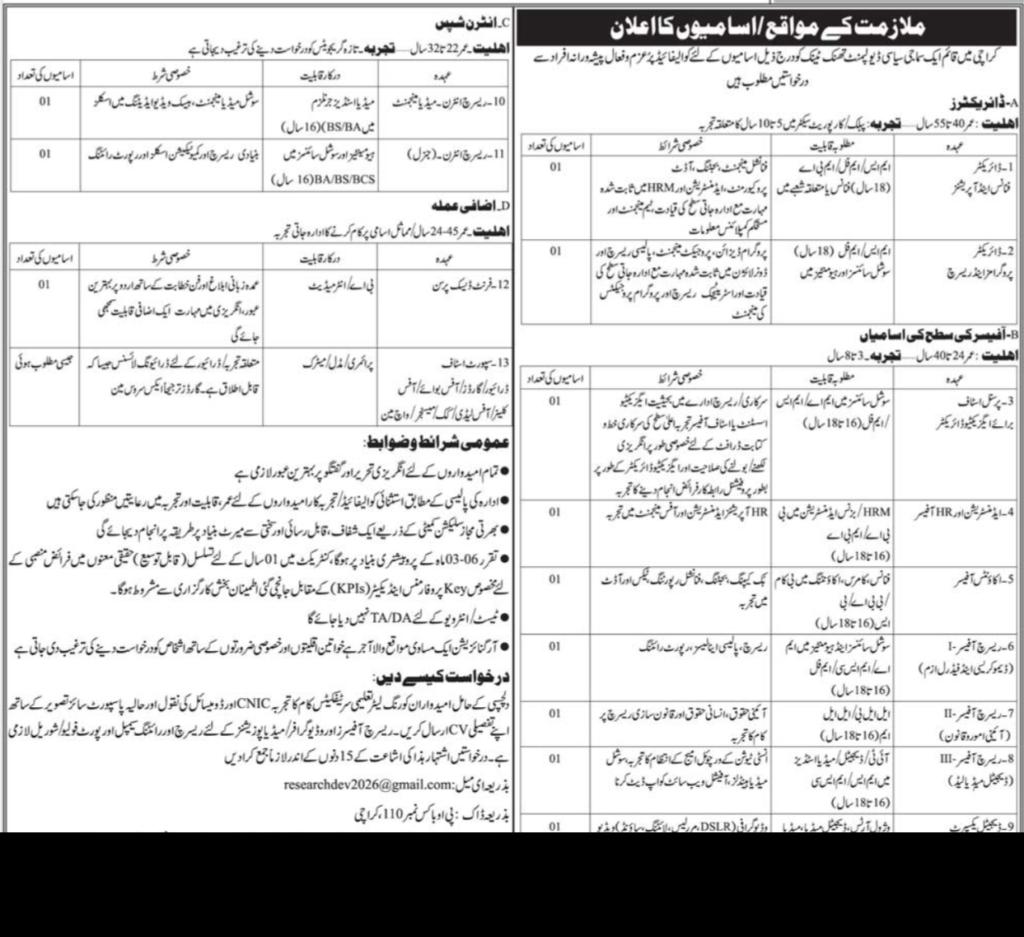 ملازمت کے مواقع/اسامیوں کا اعلان
کراچی میں قائم ایک سماجی سیاسی ڈیولپمنٹ تھنک ٹینک کو درج ذیل اسامیوں کے لئے کوالیفائیڈ پُر عزم و فعال پیشہ ورانہ افراد سے
درخواستیں مطلوب ہیں
A-ڈائریکٹرز
اہلیت: عمر 40 تا 55 سال — تجربہ: پبلک/کارپوریٹ سیکٹر میں 5 تا 10 سال کا متعلقہ تجربہ
عہدہ مطلوبہ قابلیت خصوصی شرائط اسامیوں کی تعداد
1-ڈائریکٹر ایم ایس/ایم فل/ایم بی اے فنانشل مینجمنٹ، بجٹنگ، آڈٹ 01
فنانس اینڈ آپریشنز (18 سال) فنانس یا متعلقہ شعبے میں پروکیورمنٹ، ایڈمنسٹریشن اور HRM میں ثابت شدہ
مہارت مع ادارہ جاتی سطح کی قیادت، ٹیم مینجمنٹ اور
مستحکم کمپلائنس معلومات
2-ڈائریکٹر ایم ایس/ایم فل (18 سال) پروگرام ڈیزائن، پروجیکٹ مینجمنٹ، پالیسی ریسرچ اور 01
پروگرامز اینڈ ریسرچ سوشل سائنسز اور ہیومنٹیز میں ڈونر لائزن میں ثابت شدہ مہارت مع ادارہ جاتی سطح کی
قیادت اور اسٹریٹیجک ریسرچ اور پروگرام پروجیکٹس
کی مینجمنٹ
B-آفیسر کی سطح کی اسامیاں
اہلیت: عمر 24 تا 40 سال — تجربہ: 3 تا 8 سال
عہدہ مطلوبہ قابلیت خصوصی شرائط اسامیوں کی تعداد
3-پرسنل اسٹاف سوشل سائنسز میں ایم اے/ایم ایس سرکاری/ریسرچ ادارے میں بحیثیت ایگزیکٹیو 01
برائے ایگزیکٹیو ڈائریکٹر /ایم فل (16 تا 18 سال) اسسٹنٹ یا اسٹاف آفیسر تجربہ اعلیٰ سطح کی سرکاری خط و
کتابت ڈرافٹ کے لئے خصوصی طور پر انگریزی
لکھنے/بولنے کی صلاحیت اور ایگزیکٹیو ڈائریکٹر کے طور پر
بطور پروفیشنل رابطہ کار فرائض انجام دینے کا تجربہ
4-ایڈمنسٹریشن اور HR آفیسر HRM/بزنس ایڈمنسٹریشن میں بی HR آپریشنز ایڈمنسٹریشن اور آفس مینجمنٹ میں تجربہ 01
بی اے/ایم بی اے
(16 تا 18 سال)
5-اکاؤنٹس آفیسر فنانس، کامرس، اکاؤنٹنگ میں بی کام بک کیپنگ، بجٹنگ، فنانشل رپورٹنگ، ٹیکس اور آڈٹ 01
/بی بی اے/بی میں تجربہ
ایس (16 تا 18 سال)
6-ریسرچ آفیسر-I سوشل سائنسز اینڈ ہیومنٹیز میں ایم ریسرچ، پالیسی اینالیسز، رپورٹ رائٹنگ 01
(ڈیموکریسی اینڈ فیڈرل ازم) اے/ایم ایس سی/ایم فل
(16 تا 18 سال)
7-ریسرچ آفیسر-II ایل ایل بی/ایل ایل آئینی حقوق، انسانی حقوق اور قانون سازی ریسرچ پر 01
(آئینی امور و قانون) ایم (16 تا 18 سال) کام کا تجربہ
8-ریسرچ آفیسر-III آئی ٹی/ڈیجیٹل/میڈیا اسٹڈیز انسٹی ٹیوشن کے ورچوئل امیج کے انتظام کا تجربہ، سوشل 01
(ڈیجیٹل میڈیا لیڈ) میں ایم ایس/ایم ایس سی میڈیا ہینڈلز، آفیشل ویب سائٹ کو اپ ڈیٹ کرنا
(16 تا 18 سال)
9-ڈیجیٹل ایکسپرٹ ویژول آرٹس، ڈیجیٹل میڈیا، میڈیا وڈیو گرافی (DSLR، مررلیس، لائٹنگ، ساؤنڈ) ویڈیو 01
C-انٹرن شپس
اہلیت-عمر 22 تا 32 سال — تجربہ-تازہ گریجویٹس کو درخواست دینے کی ترغیب دی جاتی ہے
عہدہ درکار قابلیت خصوصی شرط اسامیوں کی تعداد
10-ریسرچ انٹرن-میڈیا مینجمنٹ میڈیا اسٹڈیز جرنلزم سوشل میڈیا مینجمنٹ، بیسک ویڈیو ایڈیٹنگ میں اسکلز 01
میں BS/BA (16 سال)
11-ریسرچ انٹرن-(جنرل) ہیومنٹیز اور سوشل سائنسز میں بنیادی ریسرچ اور کمیونیکیشن اسکلز اور رپورٹ رائٹنگ 01
BA/BS/BCS (16 سال)
D-اضافی عملہ
اہلیت-عمر 24-45 سال/مماثل اسامی پر کام کرنے کا ادارہ جاتی تجربہ
عہدہ درکار قابلیت خصوصی شرط اسامیوں کی تعداد
12-فرنٹ ڈیسک پرسن بی اے/انٹر میڈیٹ عمدہ زبانی ابلاغ اور فن خطابت کے ساتھ اردو پر بہترین 01
عبور، انگریزی میں مہارت ایک اضافی قابلیت سمجھی
جائے گی
13-سپورٹ اسٹاف پرائمری/مڈل/میٹرک متعلقہ تجربہ/ڈرائیور کے لئے ڈرائیونگ لائسنس جیسا کہ جیسی مطلوب ہوئی
ڈرائیور/گارڈز/آفس بوائے/آفس قابل اطلاق ہے۔ گارڈز ترجیحاً ایکس سروس مین
کلینر/آفس لیڈی/کک/میسنجر/واچ مین
عمومی شرائط و ضوابط:
● تمام امیدواروں کے لئے انگریزی تحریر اور گفتگو پر بہترین عبور لازمی ہے
● ادارہ کی پالیسی کے مطابق استثنائی کوالیفائیڈ/تجربہ کار امیدواروں کے لئے عمر، قابلیت اور تجربہ میں رعایتیں منظور کی جاسکتی ہیں
● بھرتی مجاز سلیکشن کمیٹی کے ذریعے ایک شفاف، قابل رسائی اور سختی سے میرٹ بنیاد پر طریقہ پر انجام دیجائے گی
● تقرر 03-06 ماہ کے پروبیشنری بنیاد پر ہوگا، کنٹریکٹ میں 01 سال کے لئے تسلسل (قابل توسیع) حقیقی معنوں میں فرائض منصبی کے
لئے مخصوص Key پروفارمنس انڈیکیٹرز (KPIs) کے مقابل جانچی گئی اطمینان بخش کارگزاری سے مشروط ہوگا۔
● ٹیسٹ/انٹرویو کے لئے TA/DA نہیں دیا جائے گا
● آرگنائزیشن ایک مساوی مواقع والا آجر ہے خواتین اقلیتوں اور خصوصی ضرورتوں کے ساتھ اشخاص کو درخواست دینے کی ترغیب دی جاتی ہے
درخواست کیسے دیں:
دلچسپی کے حامل امیدواران کورنگ لیٹر تعلیمی سرٹیفکیٹس کام کا تجربہ CNIC اور ڈومیسائل کی نقول اور حالیہ پاسپورٹ سائز تصویر کے ساتھ
اپنے تفصیلی CV ارسال کریں۔ ریسرچ آفیسرز اور وڈیو گرافر/میڈیا پوزیشنز کے لئے ریسرچ اور رائٹنگ سیمپل اور پورٹ فولیو/شوریل لازمی
ہے۔ درخواستیں اشتہار ہذا کی اشاعت کے 15 دنوں کے اندر لازماً جمع کرادیں
بذریعہ ای میل: researchdev2026@gmail.com
بذریعہ ڈاک: پی او باکس نمبر 110، کراچی